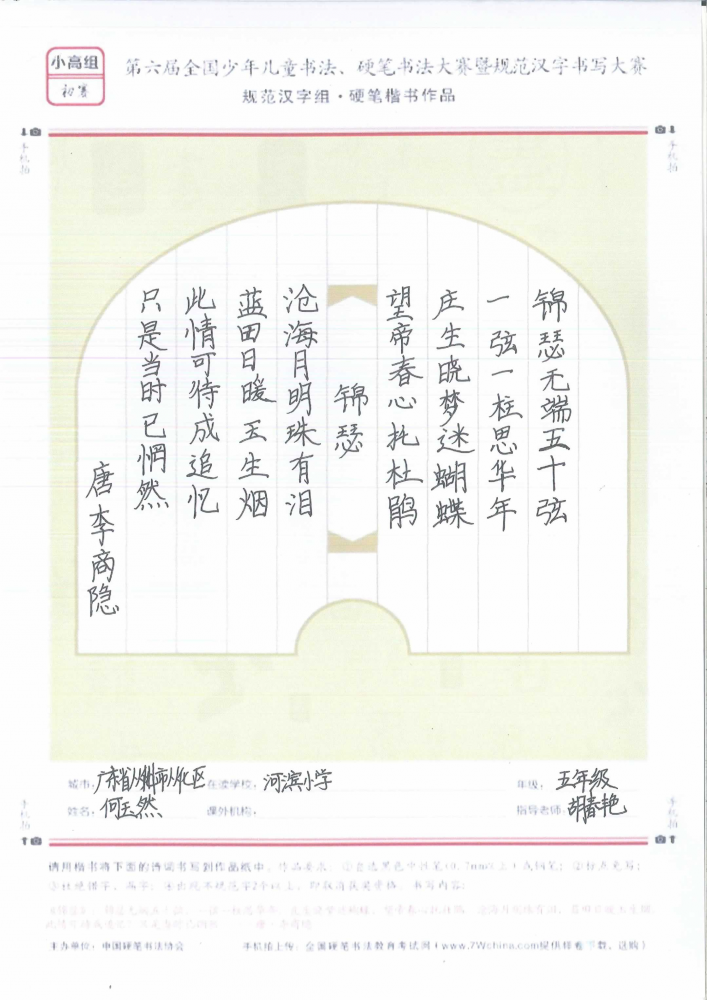 小高组
初赛
第六届全国少年儿童书法、硬笔书法大赛暨规范汉字书写大赛
规范汉字组·硬笔楷书作品
手机拍
手机拍
锦瑟无端五十弦
一弦一柱思华年
庄生晓梦迷蝴蝶
望帝春心托杜鹃
锦瑟
沧海月明珠有泪
蓝田日暖玉生烟
此情可待成追忆
只是当时已惘然
唐李商隐
城市：广东省广州市从化区 在读学校：河滨小学 年级：五年级
姓名：何玉然 课外机构： 指导老师：胡春艳
手机拍
手机拍
请用楷书将下面的诗词书写到作品纸中，作品要求：①首选黑色中性笔（0.7mm以上）或钢笔；②标点免写；
③杜绝错字、漏字；④出现不规范字2个以上，即取消获奖资格。书写内容：
主办单位：中国硬笔书法协会 手机拍上传：全国硬笔书法教育考试网（www.7Wchina.com提供样卷下载、选购）